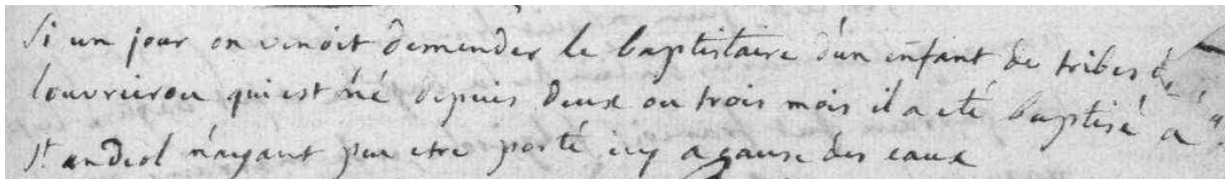 Si un jour on venoit demander le baptistaire d'un enfant de tribes de
louvrierou qui est né depuis deux ou trois mois il a eté baptisé à
St andiol n'ayant peu etre porté icy a cause des eaux